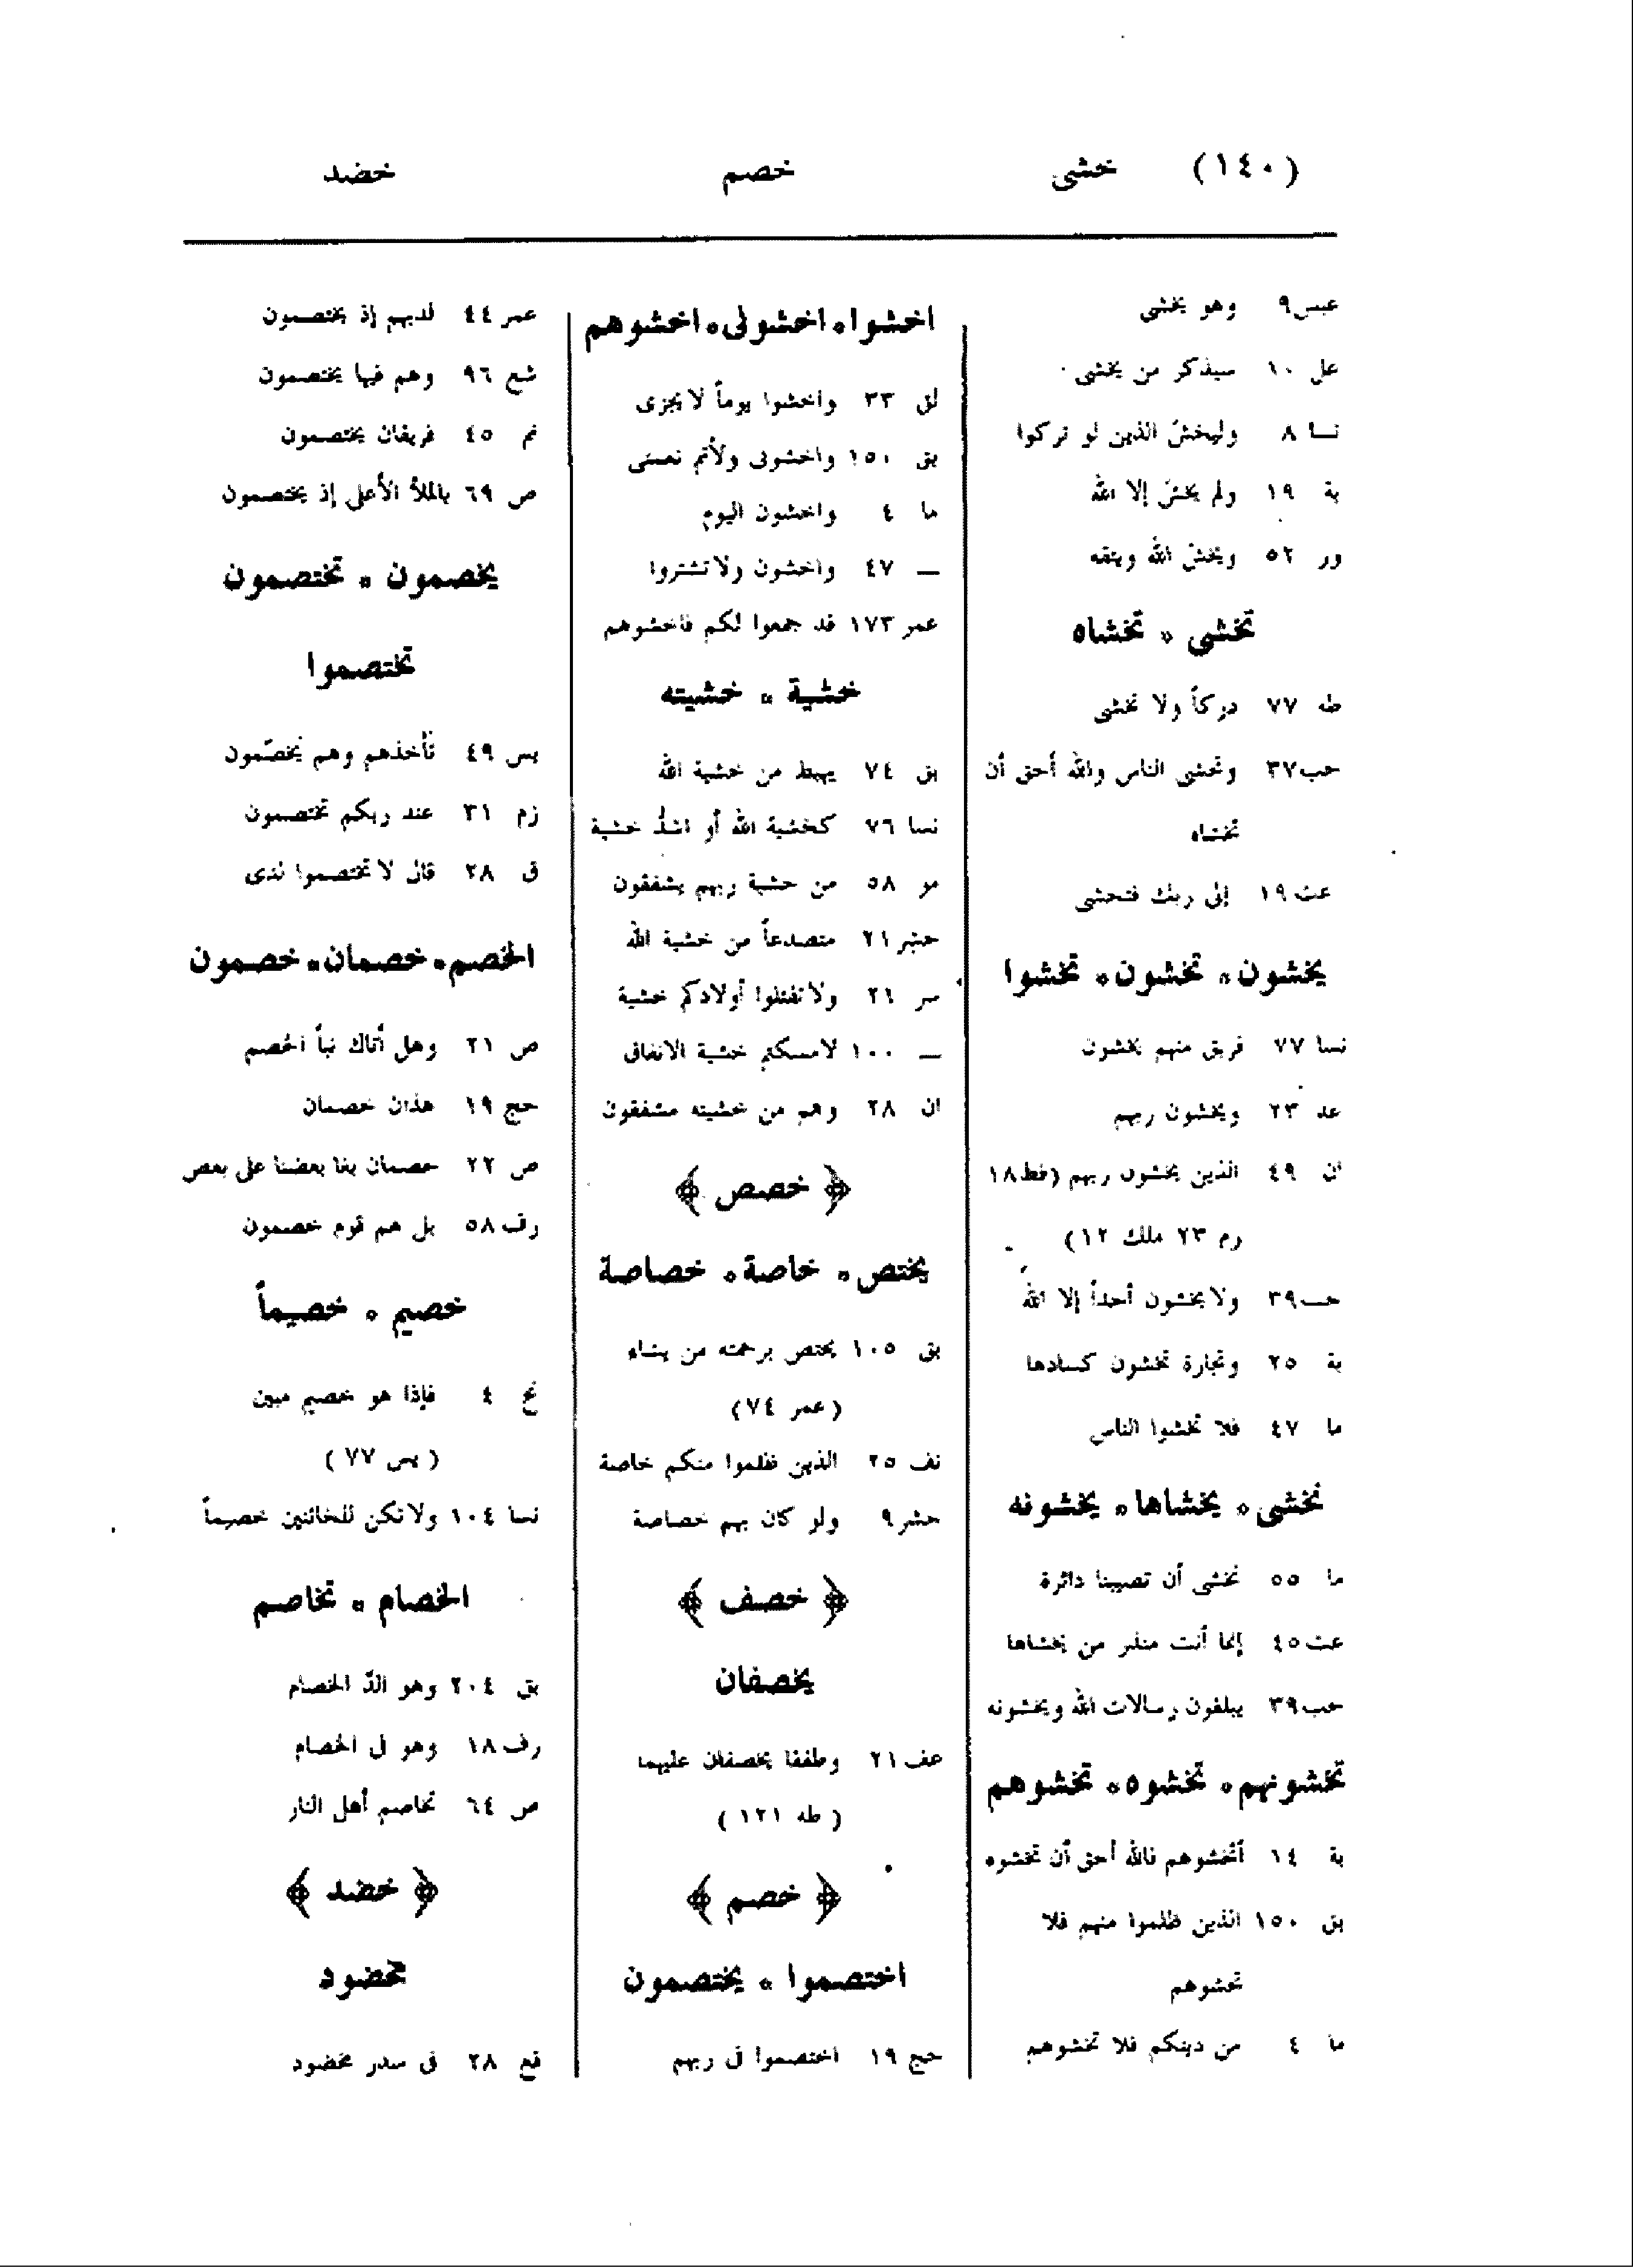 (١٤٠) خشى خصم خضد
عبس ٩ وهو يخشى
عل ١٠ سيذكر من يخشى
نسا ٨ وليخش الذين لو تركوا
بة ١٩ ولم يخش إلا الله
ور ٥٢ ويخش الله ويتقه
تخشى ٥ تخشاه
طه ٧٧ دركاً ولا تخشى
حب ٣٧ وتخشى الناس والله أحق أن
تخشاه
عت ١٩ إلى ربك فتخشى
يخشون ٥ تخشون ٥ تخشوا
نسا ٧٧ فريق منهم يخشون
عد ٢٣ ويخشون ربهم
ان ٤٩ الذين يخشون ربهم (فط ١٨
رم ٢٣ ملك ١٢)
حب ٣٩ ولا يخشون أحداً إلا الله
بة ٢٥ وتجارة تخشون كسادها
ما ٤٧ فلا تخشوا الناس
نخشى ٥ يخشاها ٥ يخشونه
ما ٥٥ نخشى أن تصيبنا دائرة
عت ٤٥ إنما أنت منذر من يخشاها
حب ٣٩ يبلغون رسالات الله ويخشونه
تخشونهم ٥ تخشوه ٥ تخشوهم
بة ١٤ أتخشوهم فالله أحق أن تخشوه
بق ١٥٠ الذين ظلموا منهم فلا
تخشوهم
ما ٤ من دينكم فلا تخشوهم
اخشوا ٥ اخشونى ٥ اخشوهم
لق ٣٣ واخشوا يوماً لا يجزى
بق ١٥٠ واخشونى ولأتم نعمتى
ما ٤ واخشون اليوم
— ٤٧ واخشون ولا تشتروا
عمر ١٧٣ قد جمعوا لكم فاخشوهم
خشية ٥ خشيته
بق ٧٤ يهبط من خشية الله
نسا ٧٦ كخشية الله أو اشدَّ خشية
مو ٥٨ من خشية ربهم يشفقون
حشر ٢١ متصدعاً من خشية الله
سر ٣١ ولا تقتلوا أولادكم خشية
— ١٠٠ لامسكتم خشية الانفاق
ان ٢٨ وهم من خشيته مشفقون
﴿ خصص ﴾
يختص ٥ خاصة ٥ خصاصة
بق ١٠٥ يختص برحمته من يشاء
(عمر ٧٤)
نف ٢٥ الذين ظلموا منكم خاصة
حشر ٩ ولو كان بهم خصاصة
﴿ خصف ﴾
يخصفان
عف ٢١ وطفقا يخصفان عليهما
(طه ١٢١)
﴿ خصم ﴾
اختصموا ٥ يختصمون
حج ١٩ اختصموا فى ربهم
عمر ٤٤ لديهم إذ يختصمون
شع ٩٦ وهم فيها يختصمون
نم ٤٥ فريقان يختصمون
ص ٦٩ بالملأ الأعلى إذ يختصمون
يخصمون ٥ تختصمون
تختصموا
يس ٤٩ تأخذهم وهم يَخصّمون
زم ٣١ عند ربكم تختصمون
ق ٢٨ قال لا تختصموا لدى
الخصم ٥ خصمان ٥ خصمون
ص ٢١ وهل أتاك نبأ الخصم
حج ١٩ هذان خصمان
ص ٢٢ خصمان بغا بعضنا على بعض
رف ٥٨ بل هم قوم خصمون
خصيم ٥ خصيماً
نح ٤ فإذا هو خصيم مبين
(يس ٧٧)
نسا ١٠٤ ولا تكن للخائنين خصيماً
الخصام ٥ تخاصم
بق ٢٠٤ وهو الدّ الخصام
رف ١٨ وهو فى الخصام
ص ٦٤ تخاصم أهل النار
﴿ خضد ﴾
مخضود
قع ٢٨ فى سدر مخضود